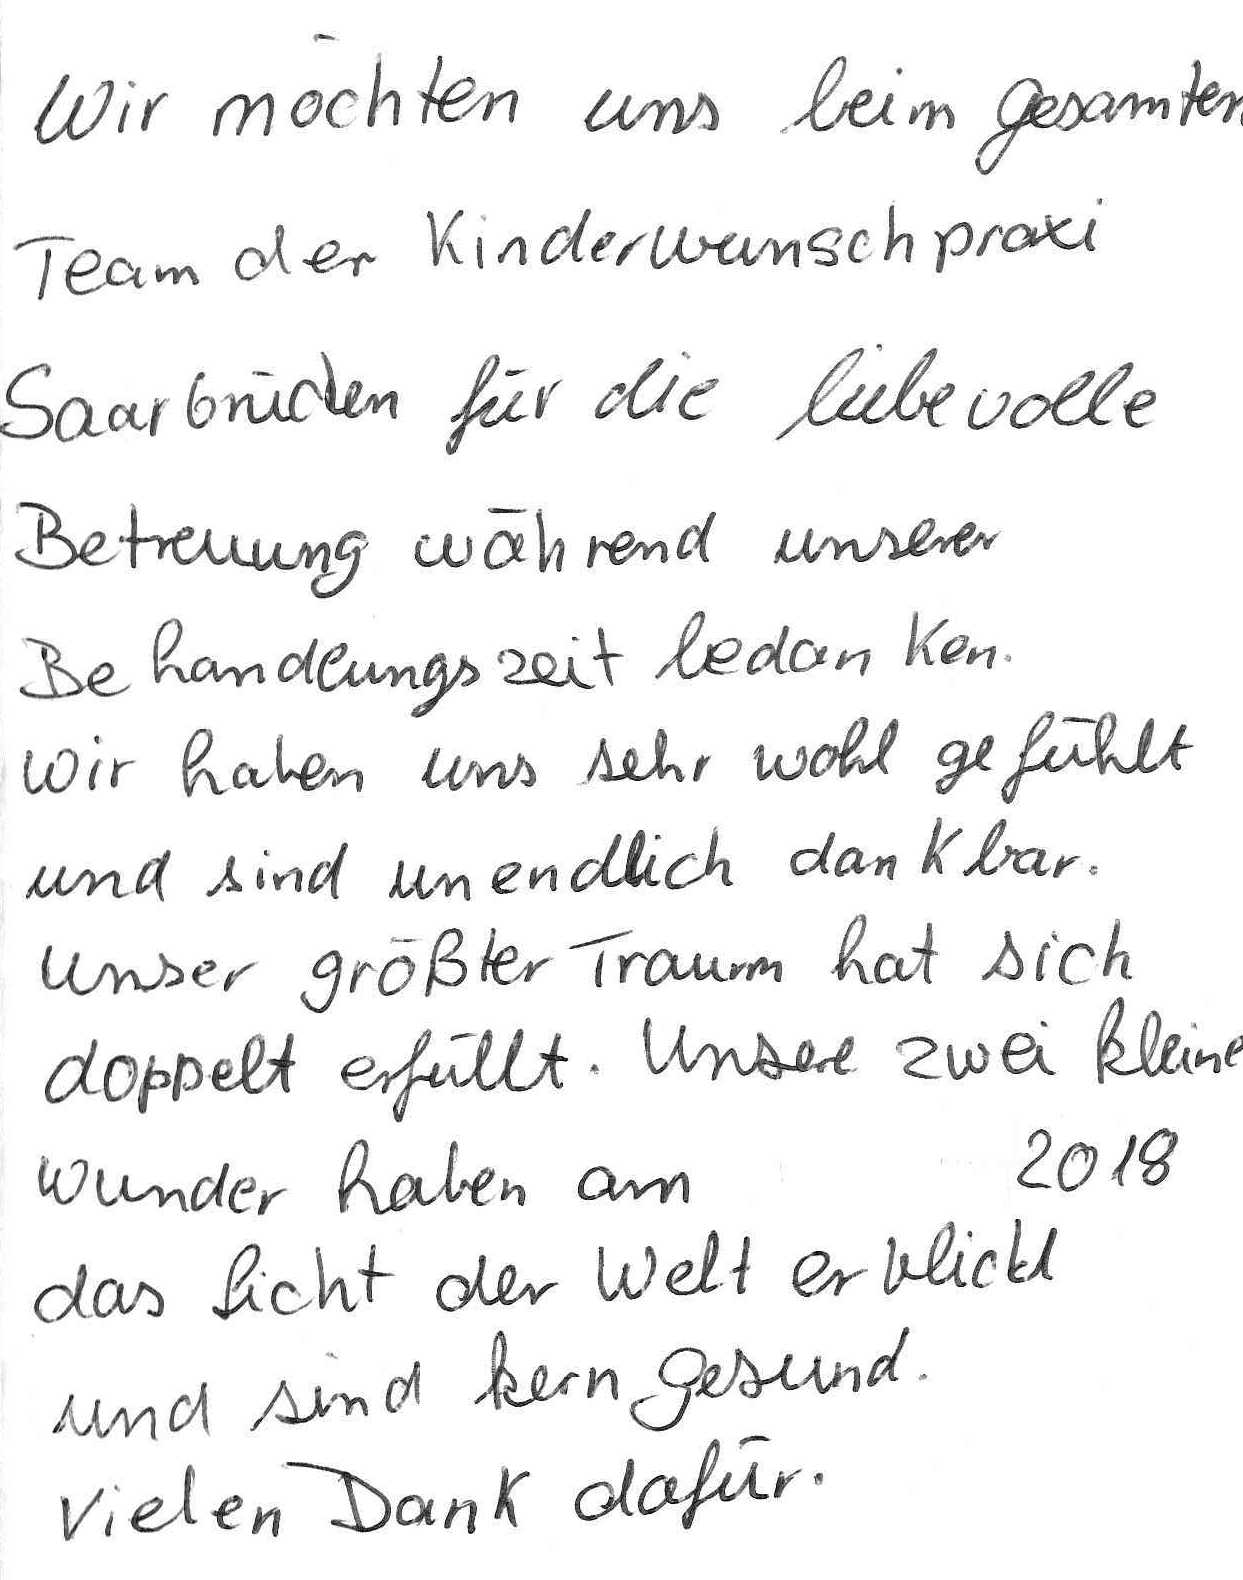 Wir möchten uns beim gesamten
Team der Kinderwunschpraxi
Saarbrücken für die liebevolle
Betreuung während unserer
Behandlungszeit bedanken.
Wir haben uns sehr wohl gefühlt
und sind unendlich dankbar.
Unser größter Traum hat sich
doppelt erfüllt. Unsere zwei kleine
Wunder haben am 2018
das Licht der Welt erblickt
und sind kerngesund.
Vielen Dank dafür.